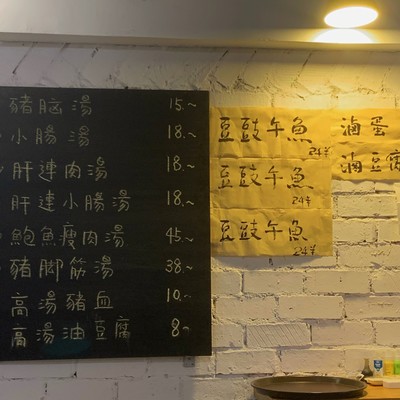 豬脑湯 15.~
小腸湯 18.~
肝連肉湯 18.~
肝連小腸湯 18.~
鮑魚瘦肉湯 45.~
豬脚筋湯 38.~
高湯豬血 10.~
高湯油豆腐 8~
豆豉午魚 24半
豆豉午魚 24半
豆豉午魚 24半
滷蛋
滷豆腐